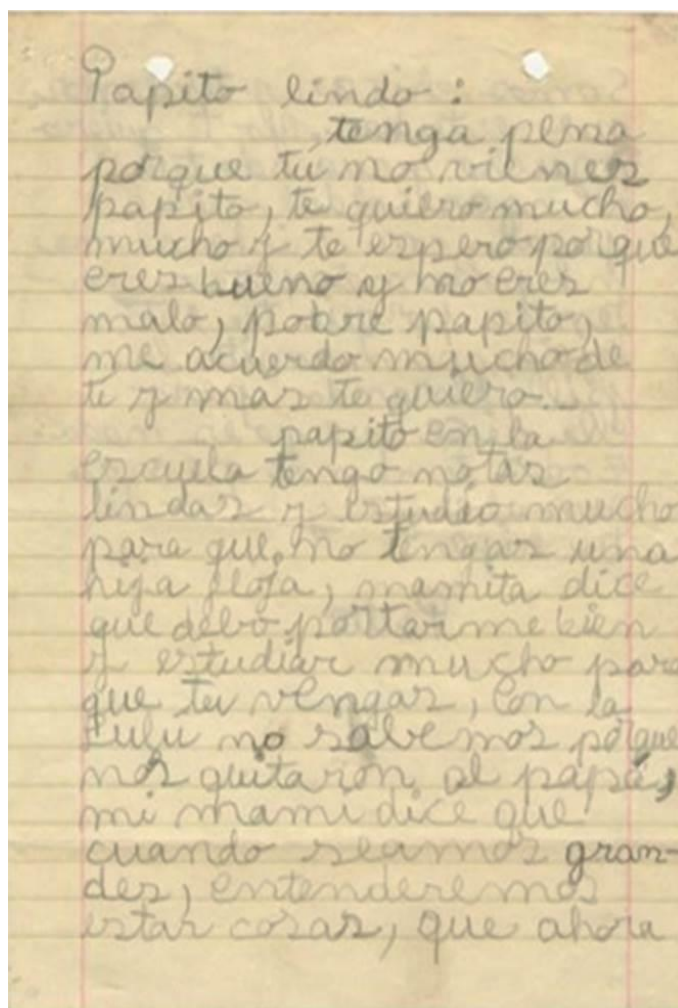 Papito lindo:
tenga pena
porque tu no vienes
papito, te quiero mucho,
mucho y te espero porque
eres bueno y no eres
malo, pobre papito,
me acuerdo mucho de
ti y mas te quiero...
papito en la
escuela tengo notas
lindas y estudio mucho
para que no tengas una
hija floja, mamita dice
que debo portarme bien
y estudiar mucho para
que tu vengas, con la
Lulu no sabemos porque
nos quitaron al papá,
mi mami dice que
cuando seamos gran-
des, entenderemos
estas cosas, que ahora